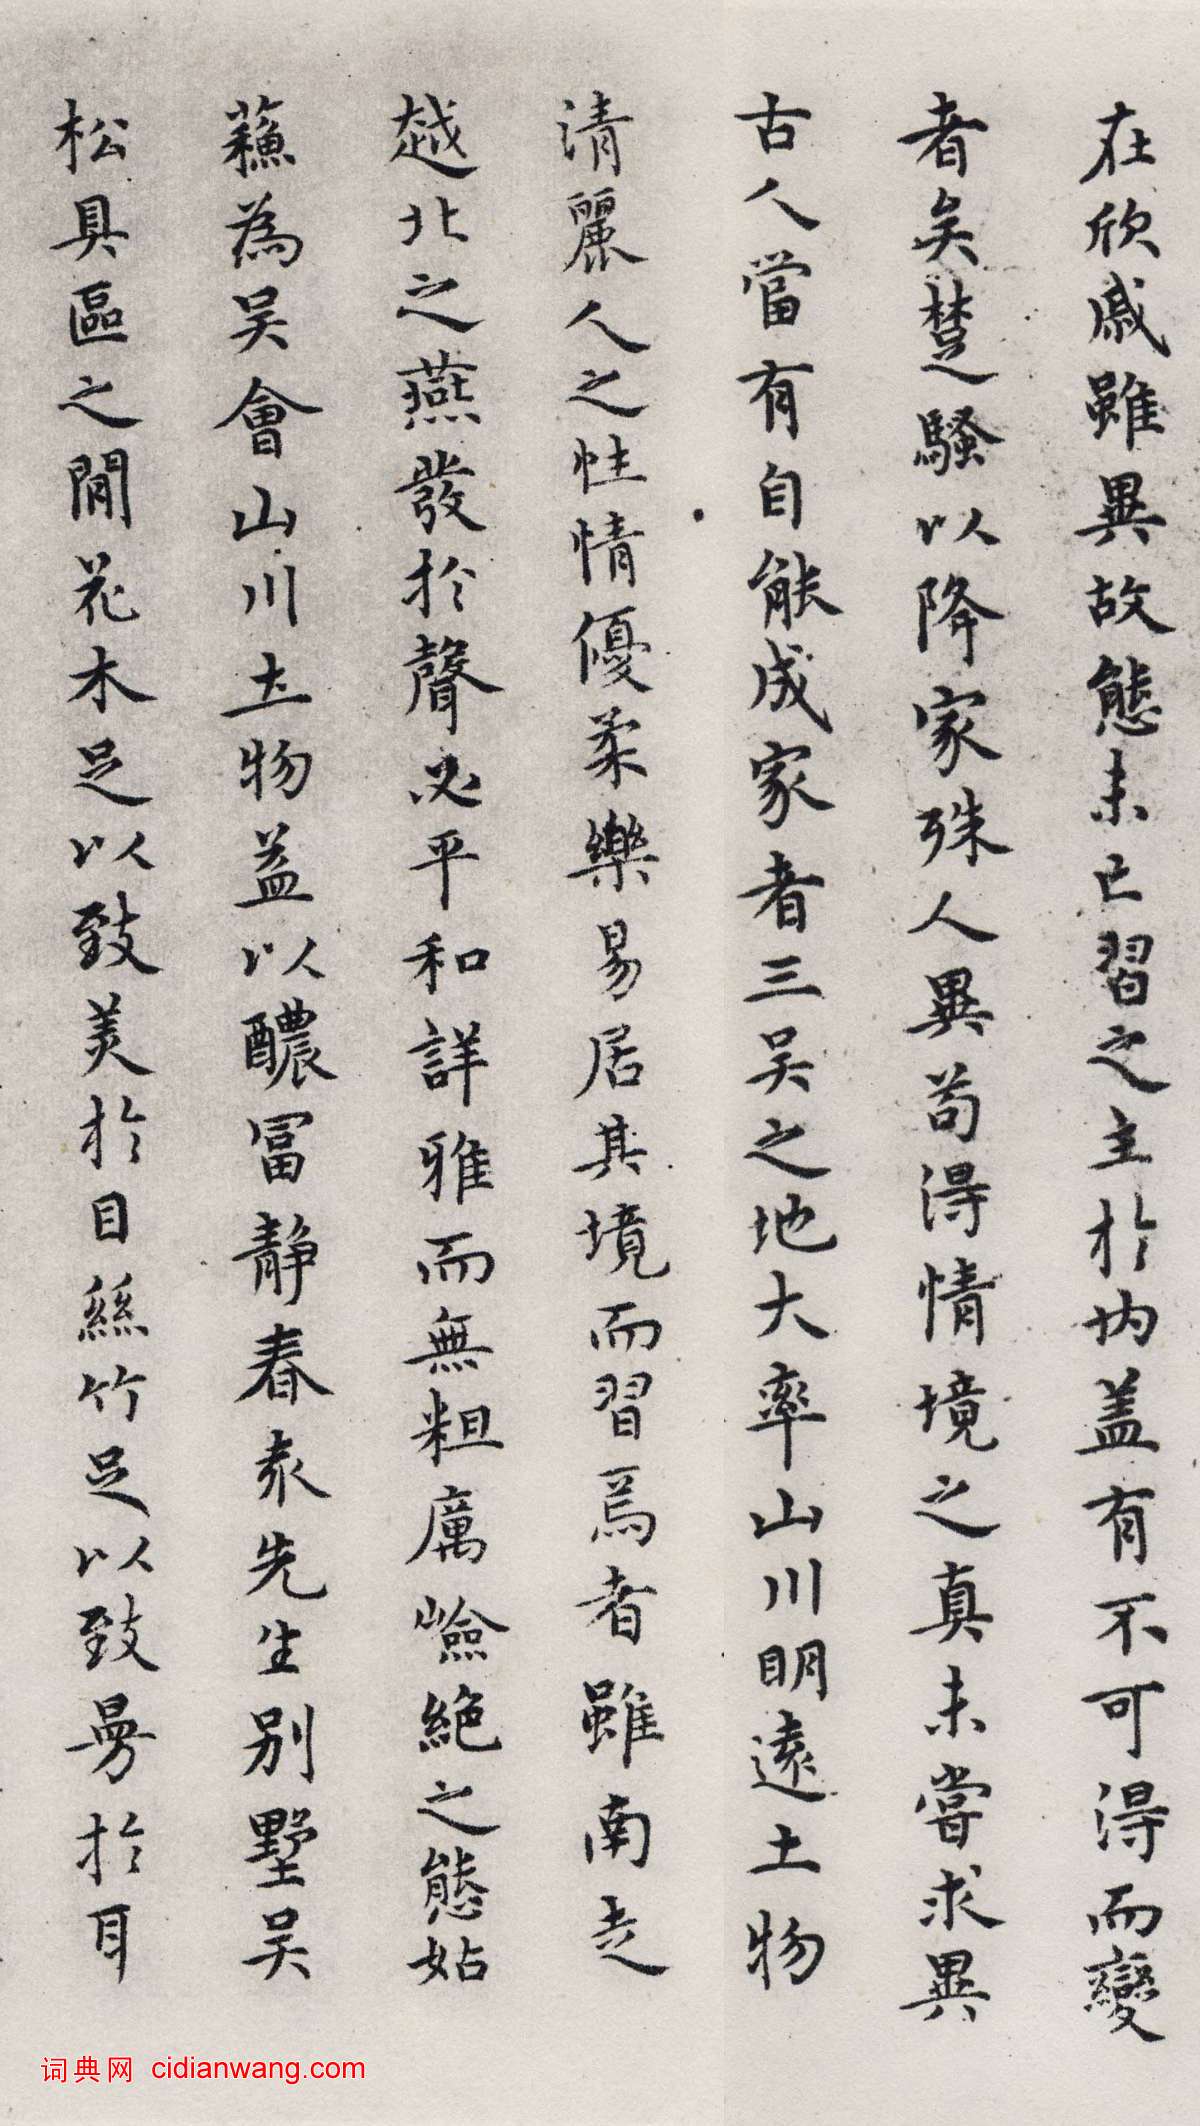 在欣戚雖異故態未亡習之主於内蓋有不可得而變
者矣楚騷以降家殊人異苟得情境之真未嘗求異
古人當有自能成家者三吴之地大率山川明遠土物
清麗人之性情優柔樂易居其境而習焉者雖南走
越北之燕發於聲必平和詳雅而無粗厲嶮絶之態姑
蘓為吴會山川土物益以醲冨静春袁先生别墅吴
松具區之間花木足以致美於目絲竹足以致曼於耳
词典网 cidianwang.com